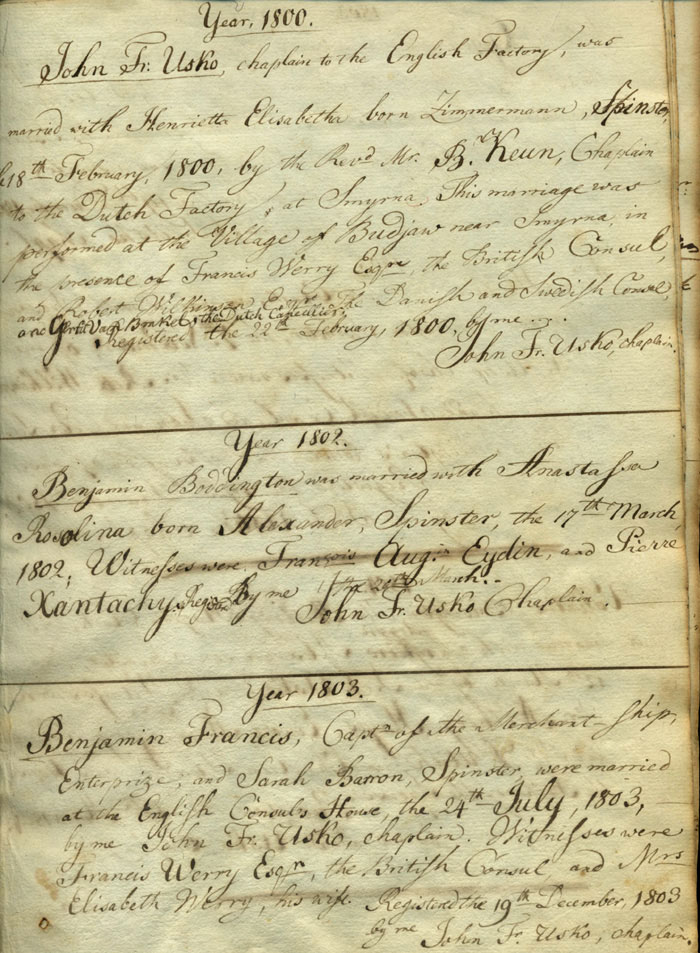 Year, 1800.
John Fr. Usko, chaplain to the English Factory, was
married with Henrietta Elisabetha born Zimmermann, Spinster,
18th February, 1800, by the Revd Mr. B. Keun, Chaplain
to the Dutch Factory, at Smyrna. This marriage was
performed at the Village of Budjaw near Smyrna, in
the presence of Francis Werry Esqre, the British Consul,
and Robert Wilkinson the Danish and Swedish Consul,
the Dutch
Registered the 22th February, 1800, by me ...
John Fr. Usko, chaplain.
Year 1802.
Benjamin Boddington was married with Anastasia
Rosolina born Alexander, Spinster, the 17th March,
1802; Witnesses were, François Augin Eydin, and Pierre
Xantachy. Regd By me 20th March.
John Fr. Usko Chaplain.
Year 1803.
Benjamin Francis, Captn of the Merchant-Ship,
Enterprize, and Sarah Barron, Spinster, were married
at the English Consul's House, the 24th July, 1803,
by me John Fr. Usko, chaplain. Witnesses were
Francis Werry Esqr, the British Consul, and Mrs
Elisabeth Werry, his wife. Registered the 19th December, 1803
by me John Fr. Usko, chaplain.